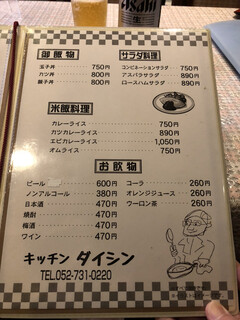 Asahi
御飯物
玉子丼 750円
カツ丼 800円
親子丼 800円
サラダ料理
コンビネーションサラダ 750円
アスパラサラダ 890円
ロースハムサラダ 890円
米飯料理
カレーライス 750円
カツカレーライス 890円
エビカレーライス 1,050円
オムライス 750円
お飲物
ビール 600円
ノンアルコール 380円
日本酒 470円
焼酎 470円
梅酒 470円
ワイン 470円
コーラ 260円
オレンジジュース 260円
ウーロン茶 260円
キッチン タイシン
TEL.052-731-0220